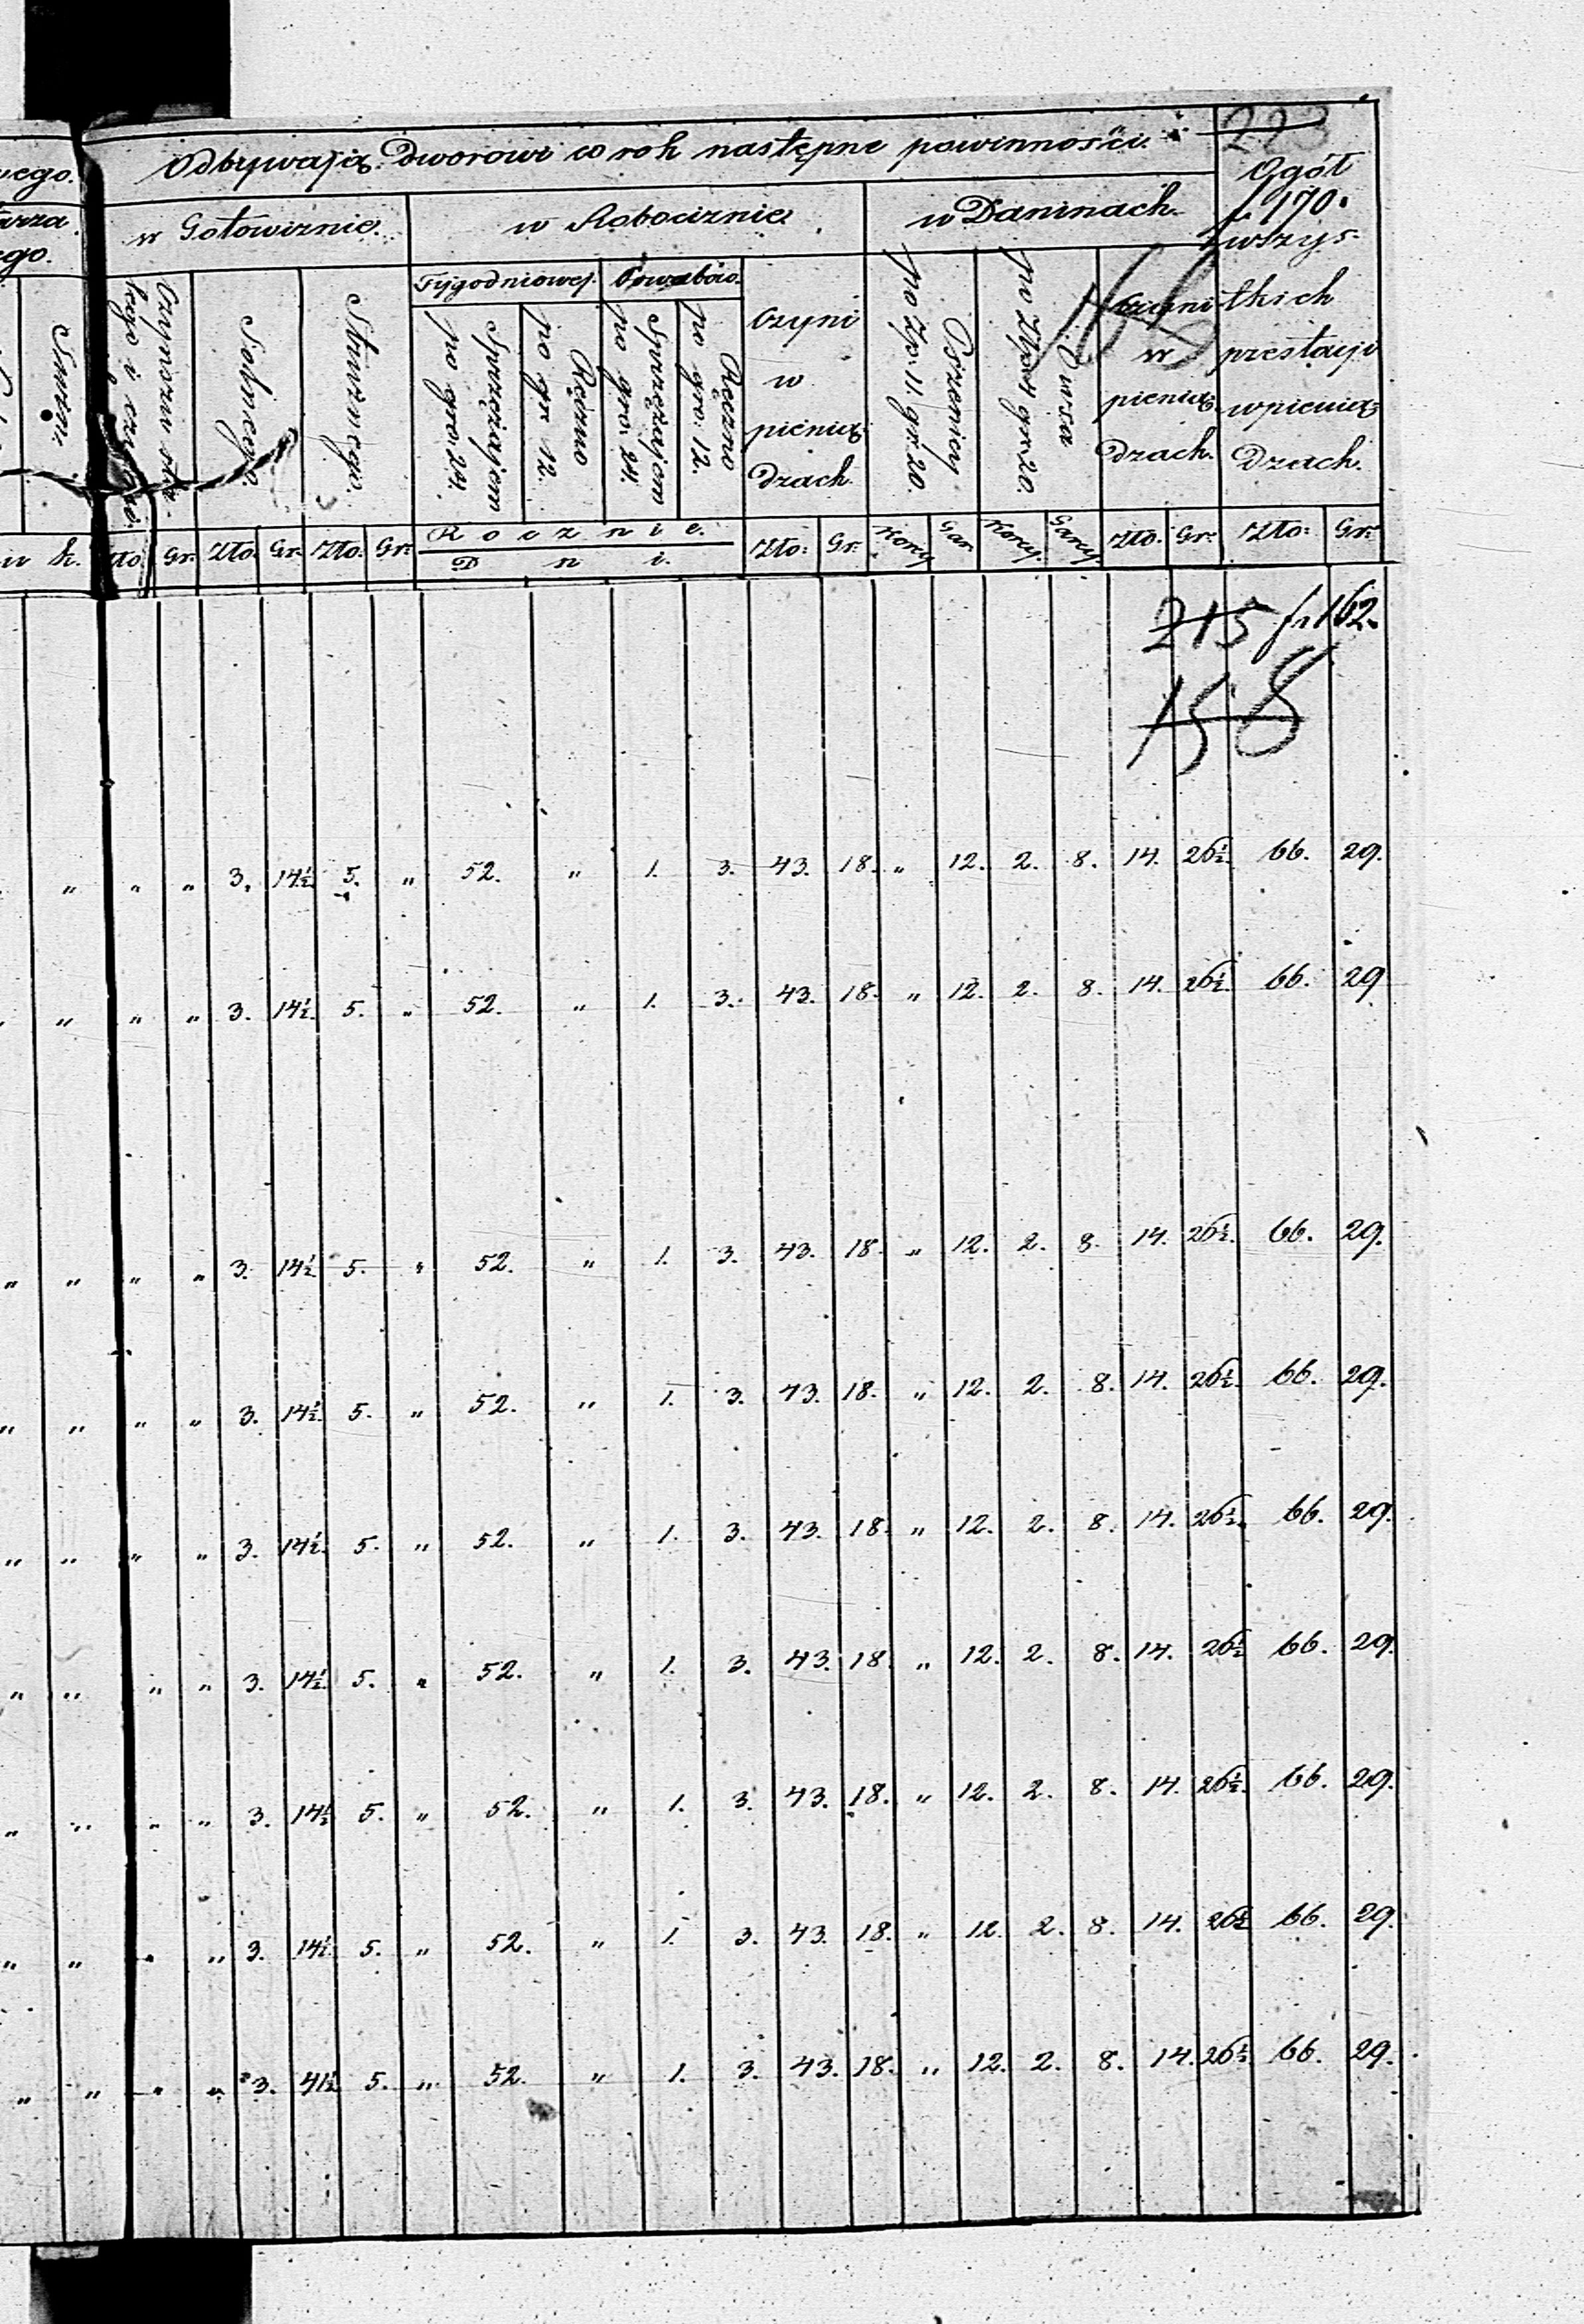 223
Odbywają Dworowi w rok następne powinności.
Ogół
f. 170.
wszys-
tkich
prestacyi
w pienią
dzach.
w Gotowiznie. w Robociznie w Daninach.
Czynszu
Solnego.
Stróżnego.
Tygodniowej. Powabów.
Sprzężajem po gro: 24.
Ręczno po gr 12.
Sprzężajem po gro: 24.
Ręczno po gro: 12.
Czyni
w
pienią
dzach
Pszenicy po Zp: 11. gr: 20.
Owsa
Czyni
w
pienią
dzach.
Snin.
Rocznie.
Dni.
Zło. Gr: Zło. Gr: Zło. Gr: Zło: Gr: Korcy Gar. Korcy. Garcy. Zło. Gr: Zło: Gr:
215 fr 162.
158
„ „ „ 3. 14½ 5. „ 52. „ 1. 3. 43. 18. „ 12. 2. 8. 14. 26½. 66. 29.
„ „ „ 3. 14½. 5. „ 52. „ 1. 3. 43. 18. „ 12. 2. 8. 14. 26½. 66. 29
„ „ „ „ 3. 14½ 5. „ 52. „ 1. 3. 43. 18. „ 12. 2. 8. 14. 26½. 66. 29.
„ „ „ „ 3. 14½. 5. „ 52. „ 1. 3. 43. 18. „ 12. 2. 8. 14. 26½. 66. 29.
„ „ „ „ 3. 14½. 5. „ 52. „ 1. 3. 43. 18. „ 12. 2. 8. 14. 26½. 66. 29.
„ „ „ „ 3. 14½. 5. „ 52. „ 1. 3. 43. 18. „ 12. 2. 8. 14. 26½ 66. 29.
„ „ „ „ 3. 14½ 5. „ 52. „ 1. 3. 43. 18. „ 12. 2. 8. 14. 26½. 66. 29.
„ „ „ „ 3. 14½. 5. „ 52. „ 1. 3. 43. 18. „ 12. 2. 8. 14. 26½ 66. 29.
„ „ „ „ 3. 41½ 5. „ 52. „ 1. 3. 43. 18. „ 12. 2. 8. 14. 26½ 66. 29.